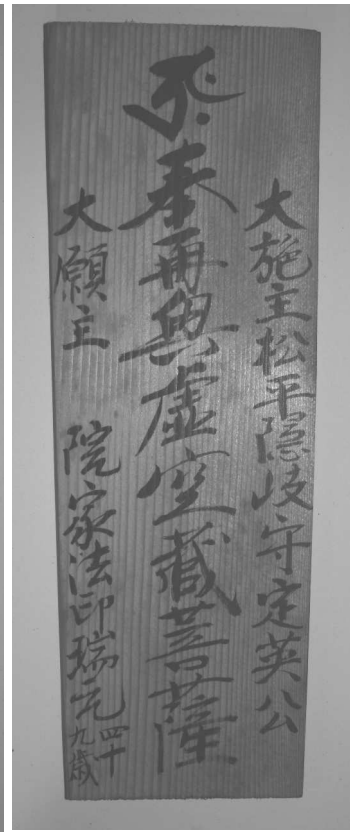 大施主松平隠岐守定英公
奉再興虚空藏菩薩
大願主 院家法印瑞
四十九歳